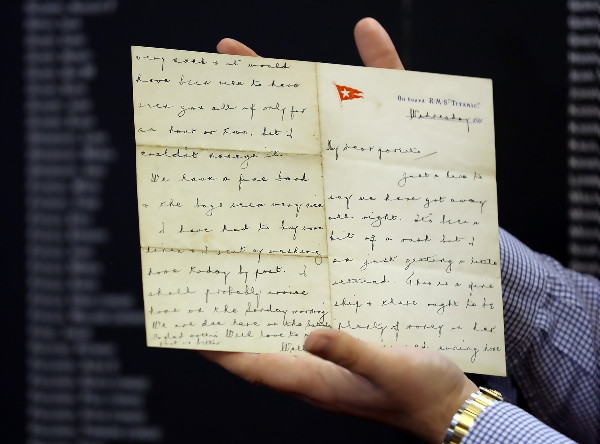 On board R.M.S. "Titanic."
Wednesday 191
My dear parents,
Just a line to
say we have got away
all right. It's been a
bit of a rush but I
am just getting a little
settled. This is a fine
ship & there ought to be
plenty of money on her
missed coming home
very much & it would
have been nice to have
seen you all if only for
an hour or two, but I
couldn't manage it.
We have a fine band
& the boys seem very nice
I have had to buy some
linen & I sent my washing
home today by post. I
shall probably arrive
home on the Sunday morning
We are due here on the
glad mother's With love to
foot is better